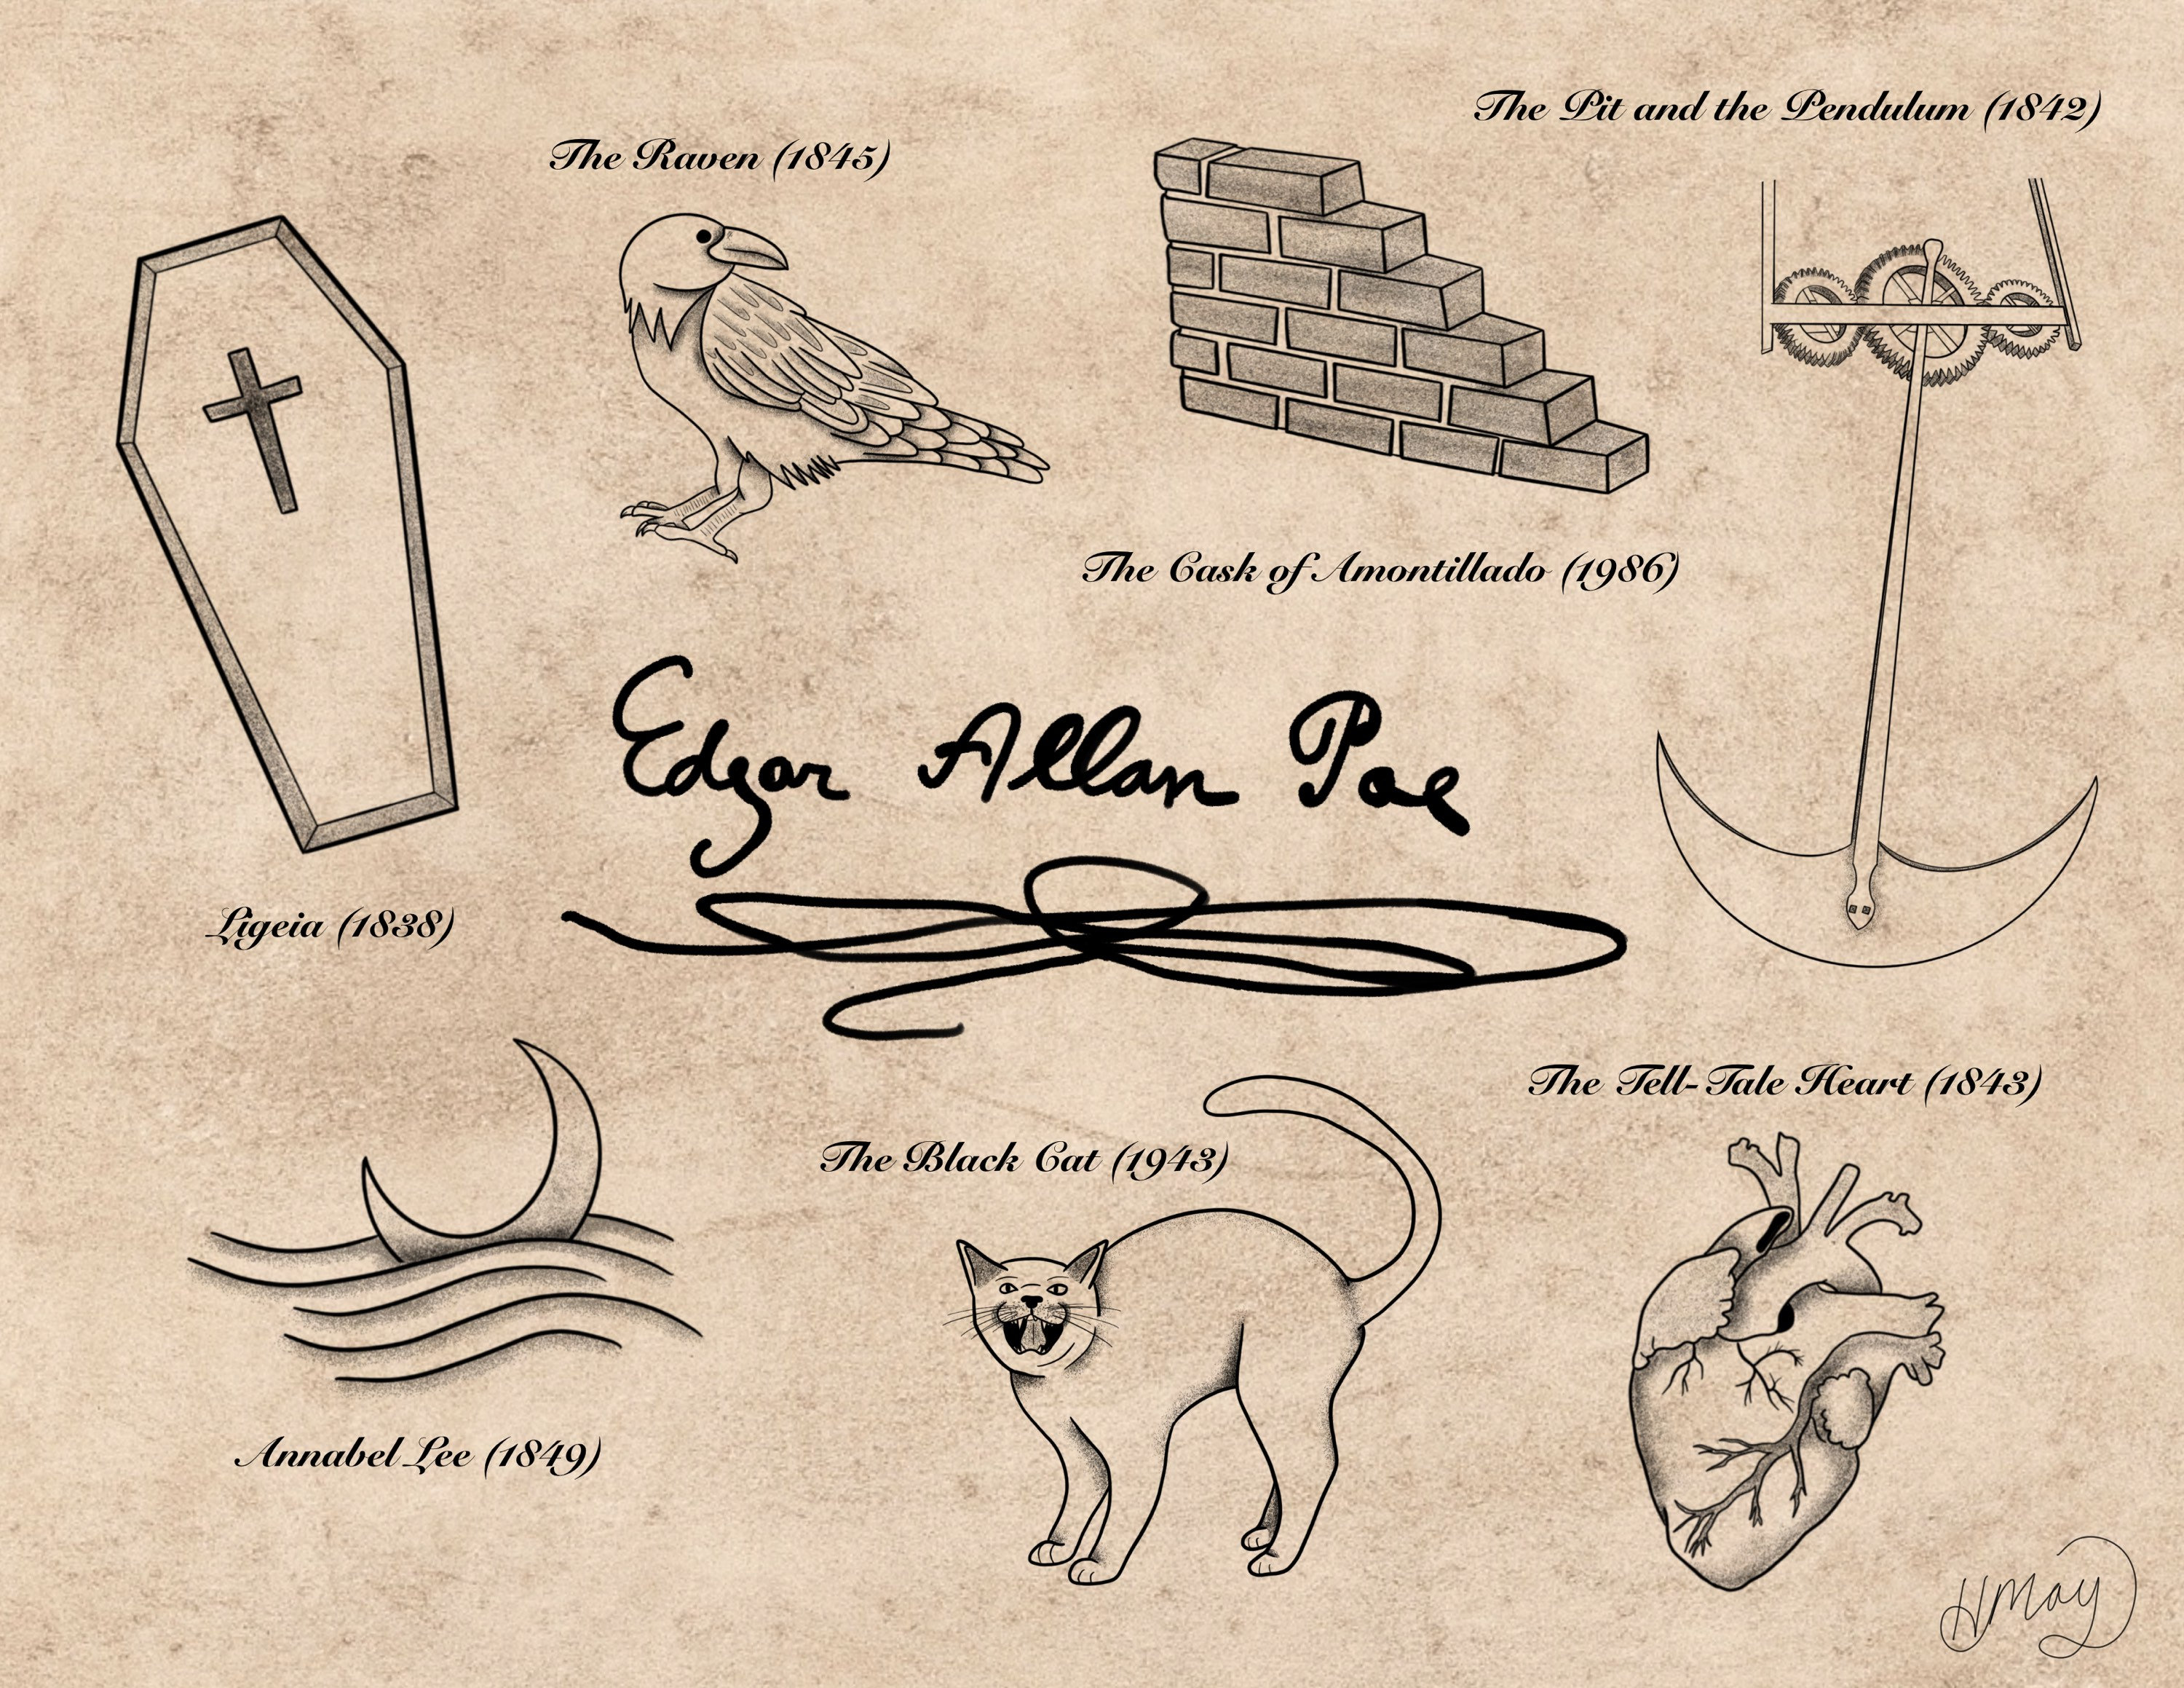 The Pit and the Pendulum (1842)
The Raven (1845)
The Cask of Amontillado (1986)
Edgar Allan Poe
Ligeia (1838)
The Tell-Tale Heart (1843)
The Black Cat (1943)
Annabel Lee (1849)
HMay